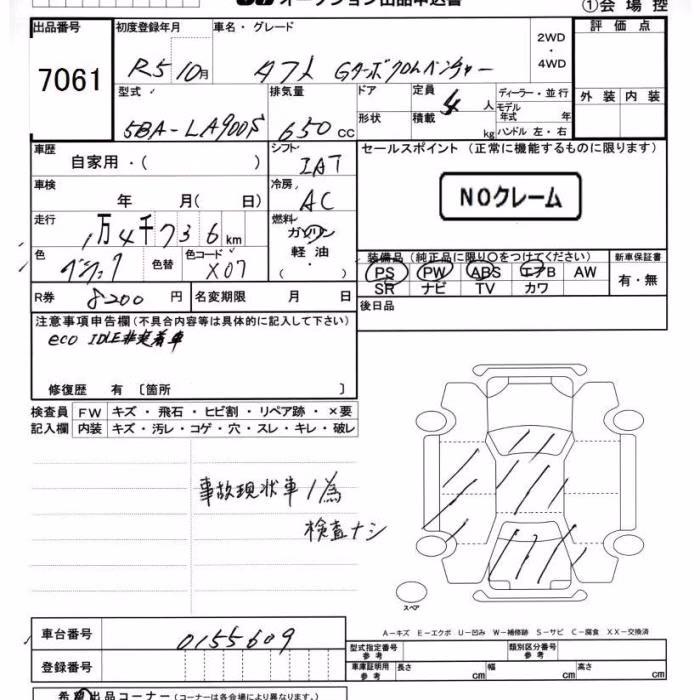 オークション出品申込書
①会場控
出品番号 初度登録年月 車名・グレード 評価点
7061 R5 10月 タフト Gターボクロムベンチャー 2WD・4WD
型式 排気量 ドア 定員 4人 ディーラー・並行 外装 内装
5BA-LA900S 650cc 形状 積載 kg モデル年式 年
ハンドル 左・右
車歴 シフト セールスポイント (正常に機能するものに限ります)
自家用・( ) IAT
車検 冷房 NOクレーム
年 月( 日) AC
走行 燃料
1万4千736km ガソリン
軽油
・( )
色 色替 色コード 装備品 (純正品に限り○をつけてください) 新車保証書
X07 PS PW ABS エアB AW 有・無
SR ナビ TV カワ
R券 8200円 名変期限 月 日 後日品
注意事項申告欄 (不具合内容等は具体的に記入して下さい)
eco IDLE非装着車
修復歴 有 〔箇所 〕
検査員 FW キズ・飛石・ヒビ割・リペア跡・×要
記入欄 内装 キズ・汚レ・コゲ・穴・スレ・キレ・破レ
事故現状車ノ為
検査ナシ
スペア
A-キズ E-エクボ U-凹み W-補修跡 S-サビ C-腐食 XX-交換済
車台番号 0155609
型式指定番号 参考 類別区分番号 参考
登録番号 車庫証明用 参考 長さ cm 幅 cm 高さ cm
希望出品コーナー (コーナーは各会場により異なります。)